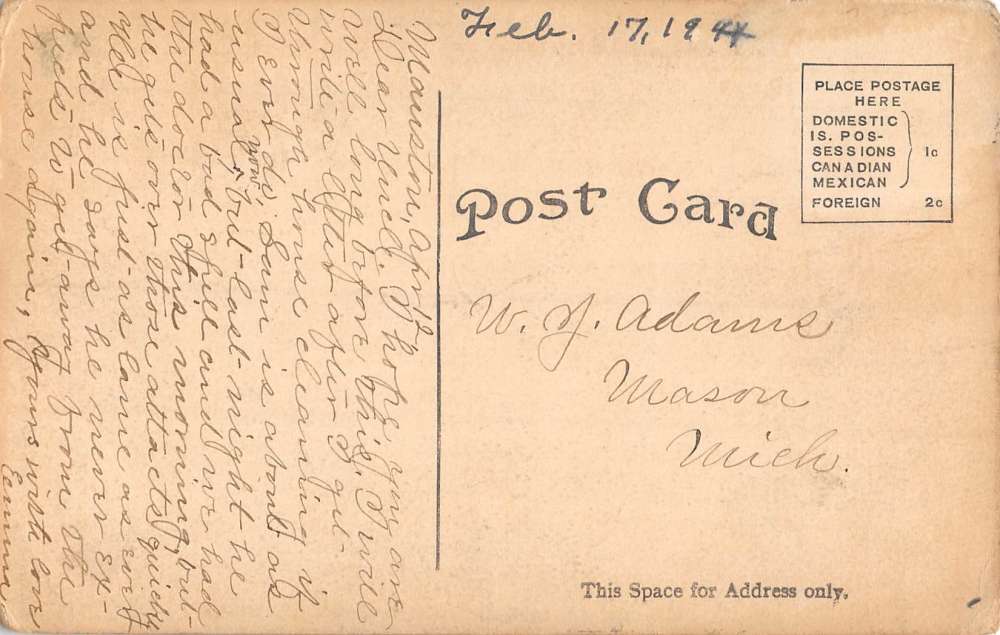 Feb. 17, 1944
PLACE POSTAGE
HERE
DOMESTIC
IS. POS-
SESSIONS
CANADIAN
MEXICAN
1c
FOREIGN 2c
Post Card
W. J. Adams
Mason
Mich.
This Space for Address only.
Mauston, Apr. 19
Dear Uncle. I hope you are
well long before this. I will
write a letter after I get
through house cleaning if
I ever do. Sam is about as
usual now, but last night he
had a bad spell and we had
the doctor this morning, but
he gets over those attacks quickly
He is just as lame as ever
and he says he never ex-
pects to get away from the
house again, Yours with love
Emma